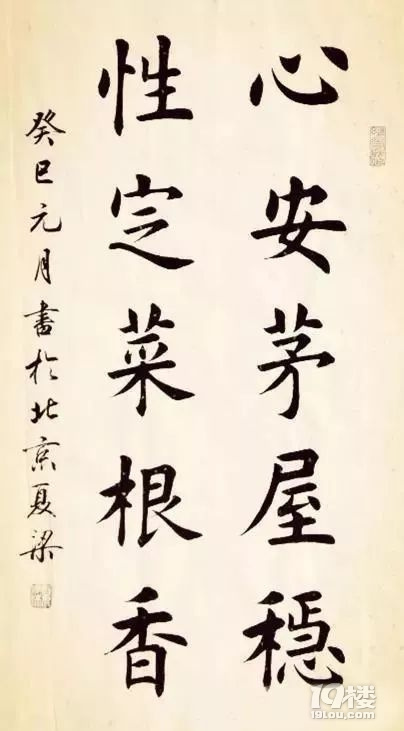 心安茅屋穩
性定菜根香
癸巳元月書於北京夏梁
19楼
19lou.com